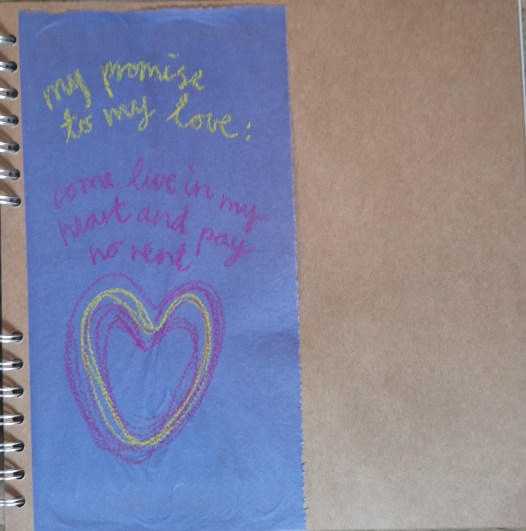 my promise
to my love:
come live in my
heart and pay
no rent